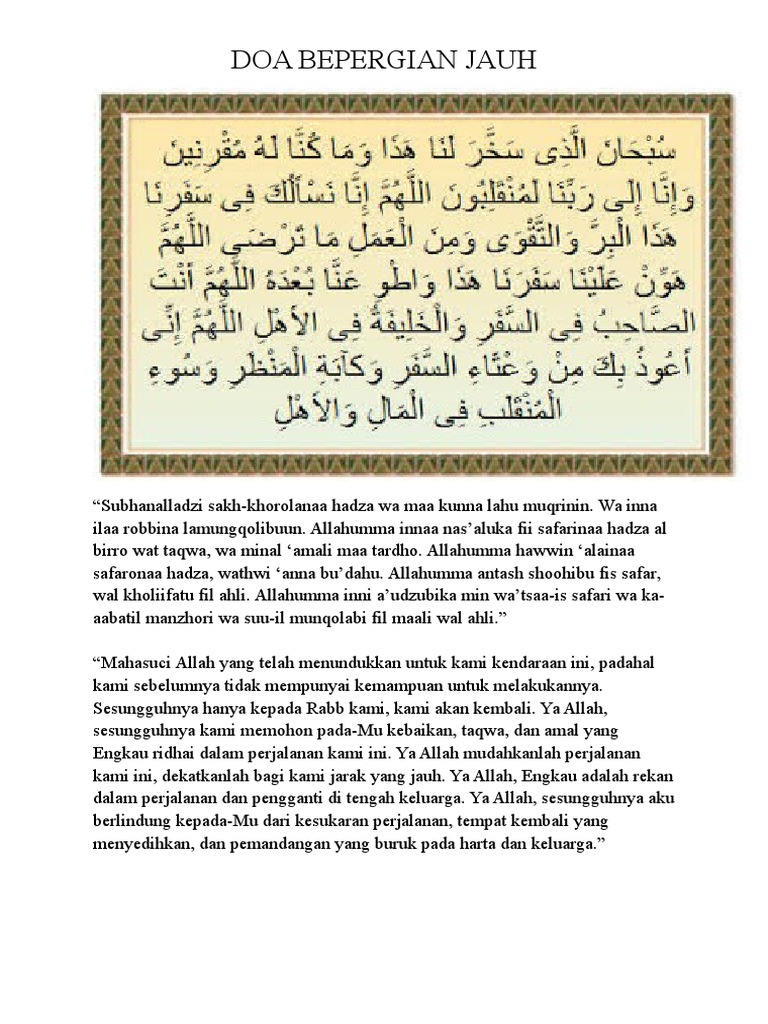 DOA BEPERGIAN JAUH
سُبْحَانَ الَّذِى سَخَّرَ لَنَا هَذَا وَمَا كُنَّا لَهُ مُقْرِنِينَ
وَإِنَّا إِلَى رَبِّنَا لَمُنْقَلِبُونَ اللَّهُمَّ إِنَّا نَسْأَلُكَ فِى سَفَرِنَا
هَذَا الْبِرَّ وَالتَّقْوَى وَمِنَ الْعَمَلِ مَا تَرْضَى اللَّهُمَّ
هَوِّنْ عَلَيْنَا سَفَرَنَا هَذَا وَاطْوِ عَنَّا بُعْدَهُ اللَّهُمَّ أَنْتَ
الصَّاحِبُ فِى السَّفَرِ وَالْخَلِيفَةُ فِى الأَهْلِ اللَّهُمَّ إِنِّى
أَعُوذُ بِكَ مِنْ وَعْثَاءِ السَّفَرِ وَكَآبَةِ الْمَنْظَرِ وَسُوءِ
الْمُنْقَلَبِ فِى الْمَالِ وَالأَهْلِ
“Subhanalladzi sakh-khorolanaa hadza wa maa kunna lahu muqrinin. Wa inna
ilaa robbina lamungqolibuun. Allahumma innaa nas’aluka fii safarinaa hadza al
birro wat taqwa, wa minal ‘amali maa tardho. Allahumma hawwin ‘alainaa
safaronaa hadza, wathwi ‘anna bu’dahu. Allahumma antash shoohibu fis safar,
wal kholiifatu fil ahli. Allahumma inni a’udzubika min wa’tsaa-is safari wa ka-
aabatil manzhori wa suu-il munqolabi fil maali wal ahli.”
“Mahasuci Allah yang telah menundukkan untuk kami kendaraan ini, padahal
kami sebelumnya tidak mempunyai kemampuan untuk melakukannya.
Sesungguhnya hanya kepada Rabb kami, kami akan kembali. Ya Allah,
sesungguhnya kami memohon pada-Mu kebaikan, taqwa, dan amal yang
Engkau ridhai dalam perjalanan kami ini. Ya Allah mudahkanlah perjalanan
kami ini, dekatkanlah bagi kami jarak yang jauh. Ya Allah, Engkau adalah rekan
dalam perjalanan dan pengganti di tengah keluarga. Ya Allah, sesungguhnya aku
berlindung kepada-Mu dari kesukaran perjalanan, tempat kembali yang
menyedihkan, dan pemandangan yang buruk pada harta dan keluarga.”